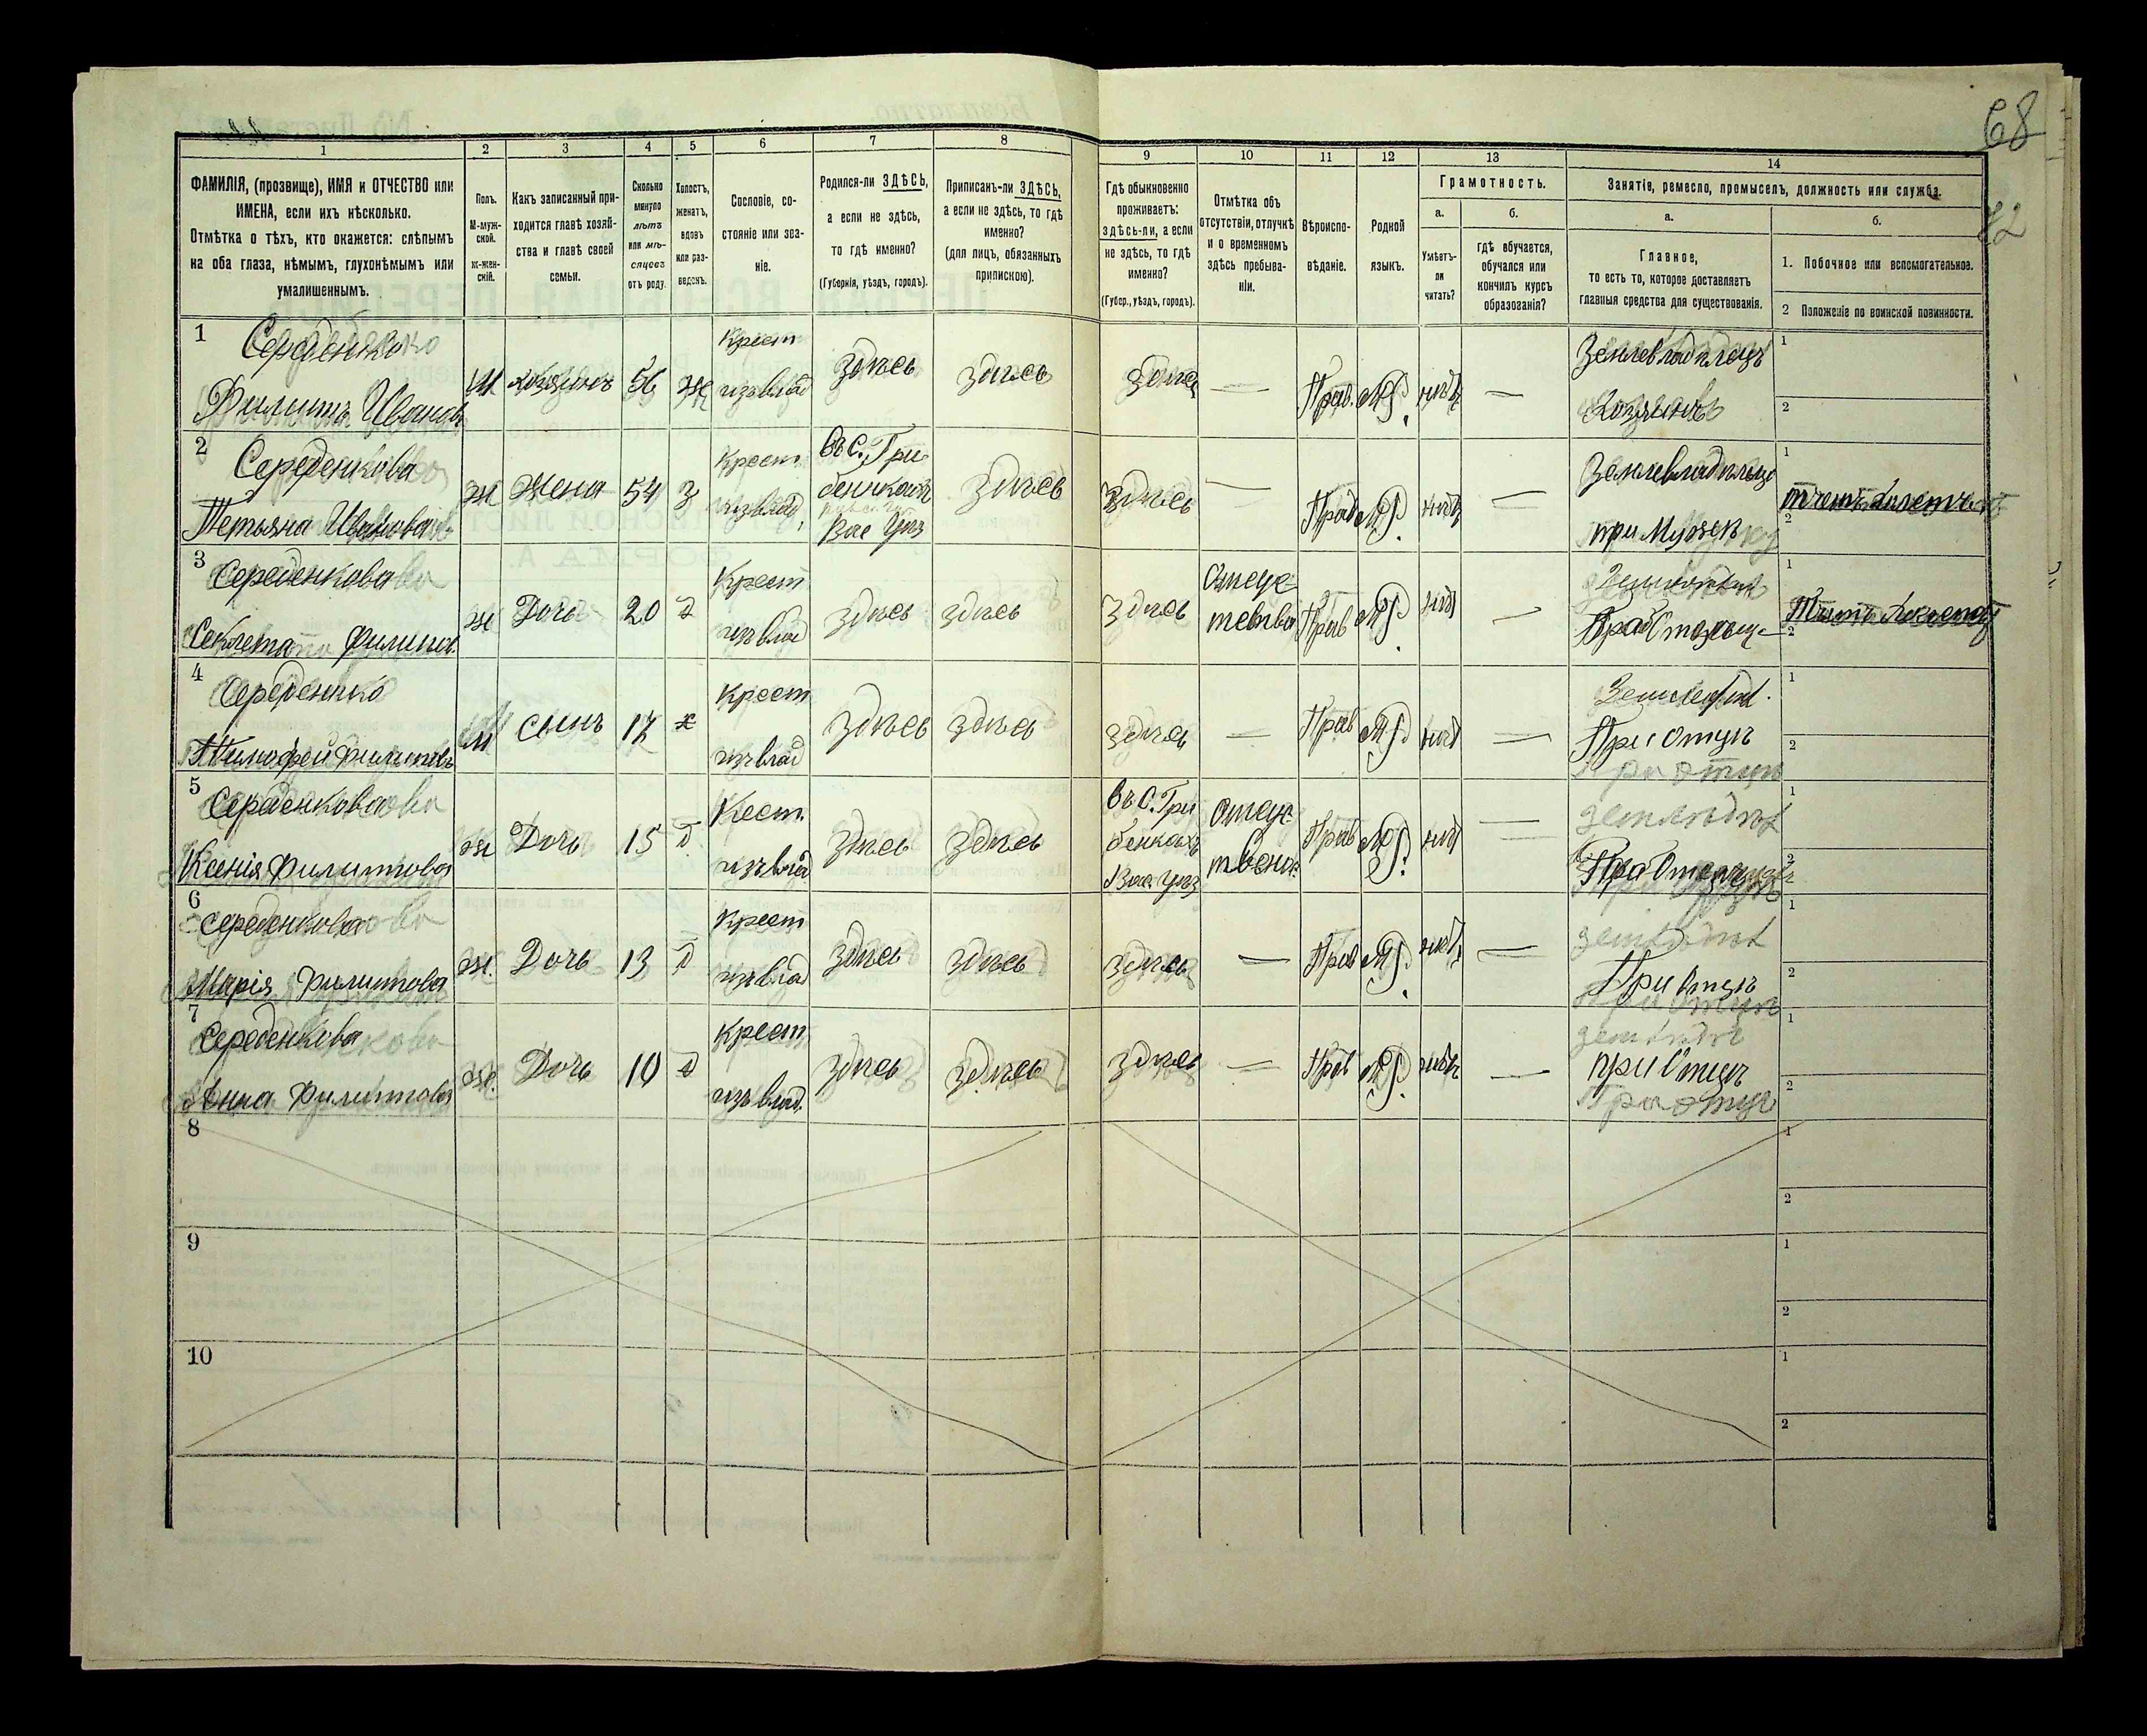 68
72
1 2 3 4 5 6 7 8 9 10 11 12 13 14
ФАМИЛІЯ, (прозвище), ИМЯ и ОТЧЕСТВО или
ИМЕНА, если ихъ нѣсколько.
Отмѣтка о тѣхъ, кто окажется: слѣпымъ
на оба глаза, нѣмымъ, глухонѣмымъ или
умалишеннымъ.
Полъ.
М-муж-
ской.
ж-жен-
скій.
Какъ записанный при-
ходится главѣ хозяй-
ства и главѣ своей
семьи.
Сколько
минуло
лѣтъ
или мѣ-
сяцевъ
отъ роду.
Холостъ,
женатъ,
вдовъ
или раз-
веденъ.
Сословіе, со-
стояніе или зва-
ніе.
Родился-ли ЗДѢСЬ,
а если не здѣсь,
то гдѣ именно?
(Губернія, уѣздъ, городъ).
Приписанъ-ли ЗДѢСЬ,
а если не здѣсь, то гдѣ
именно?
(для лицъ, обязанныхъ
припискою).
Гдѣ обыкновенно
проживаетъ:
здѣсь-ли, а если
не здѣсь, то гдѣ
именно?
(Губер., уѣздъ, городъ).
Отмѣтка объ
отсутствіи, отлучкѣ
и о временномъ
здѣсь пребыва-
ніи.
Вѣроиспо-
вѣданіе.
Родной
языкъ.
Грамотность.
а.
Умѣетъ-
ли
читать?
б.
гдѣ обучается,
обучался или
кончилъ курсъ
образованія?
Занятіе, ремесло, промыселъ, должность или служба.
а.
Главное,
то есть то, которое доставляетъ
главныя средства для существованія.
б.
1. Побочное или вспомогательное.
2 Положеніе по воинской повинности.
1 Середенко
Филиппъ Ивановъ
М хозяинъ 56 ж
Крест
изъ влад
здѣсь здѣсь здѣсь — Прав. МР. нѣтъ —
Землевладѣлецъ
Хозяинъ
1
2
2 Середенкова
Татьяна Иванова
ж Жена 54 з
Крест
изъ влад,
въ С. Гри
бенкахъ
Вас Уѣз
здѣсь здѣсь — Прав МР. нѣтъ —
при Мужѣ
1
2
3 Середенкова
Филипов.
ж Дочь 20 д
Крест
изъ влад
здѣсь здѣсь здѣсь
Отсут-
Прав МР. нѣт —
1
2
4 Середенко
Тимофей Филиповъ
М сынъ 17 х
Крест
изъ влад
здѣсь здѣсь здѣсь — Прав МР. нѣт —
При Отцѣ
1
2
5 Середенкова
Ксенія Филиппова
ж Дочь 15 д
Крест.
изъ влад
здѣсь здѣсь
въ С. Гри
бенкахъ
Вас. Уѣз
Отсут-
Прав МР. нѣт —
При Отцѣ
1
2
6 Середенкова
Марія Филиппова
ж. Дочь 13 д
Крест
изъ влад
здѣсь здѣсь здѣсь — Прав МР. нѣт —
При Отцѣ
1
2
7 Середенкова
Анна Филиппова
ж. Дочь 10 д
Крест
изъ влад.
здѣсь здѣсь здѣсь — Прав МР. нѣтъ —
при Отцѣ
1
2
8
1
2
9
1
2
10
1
2